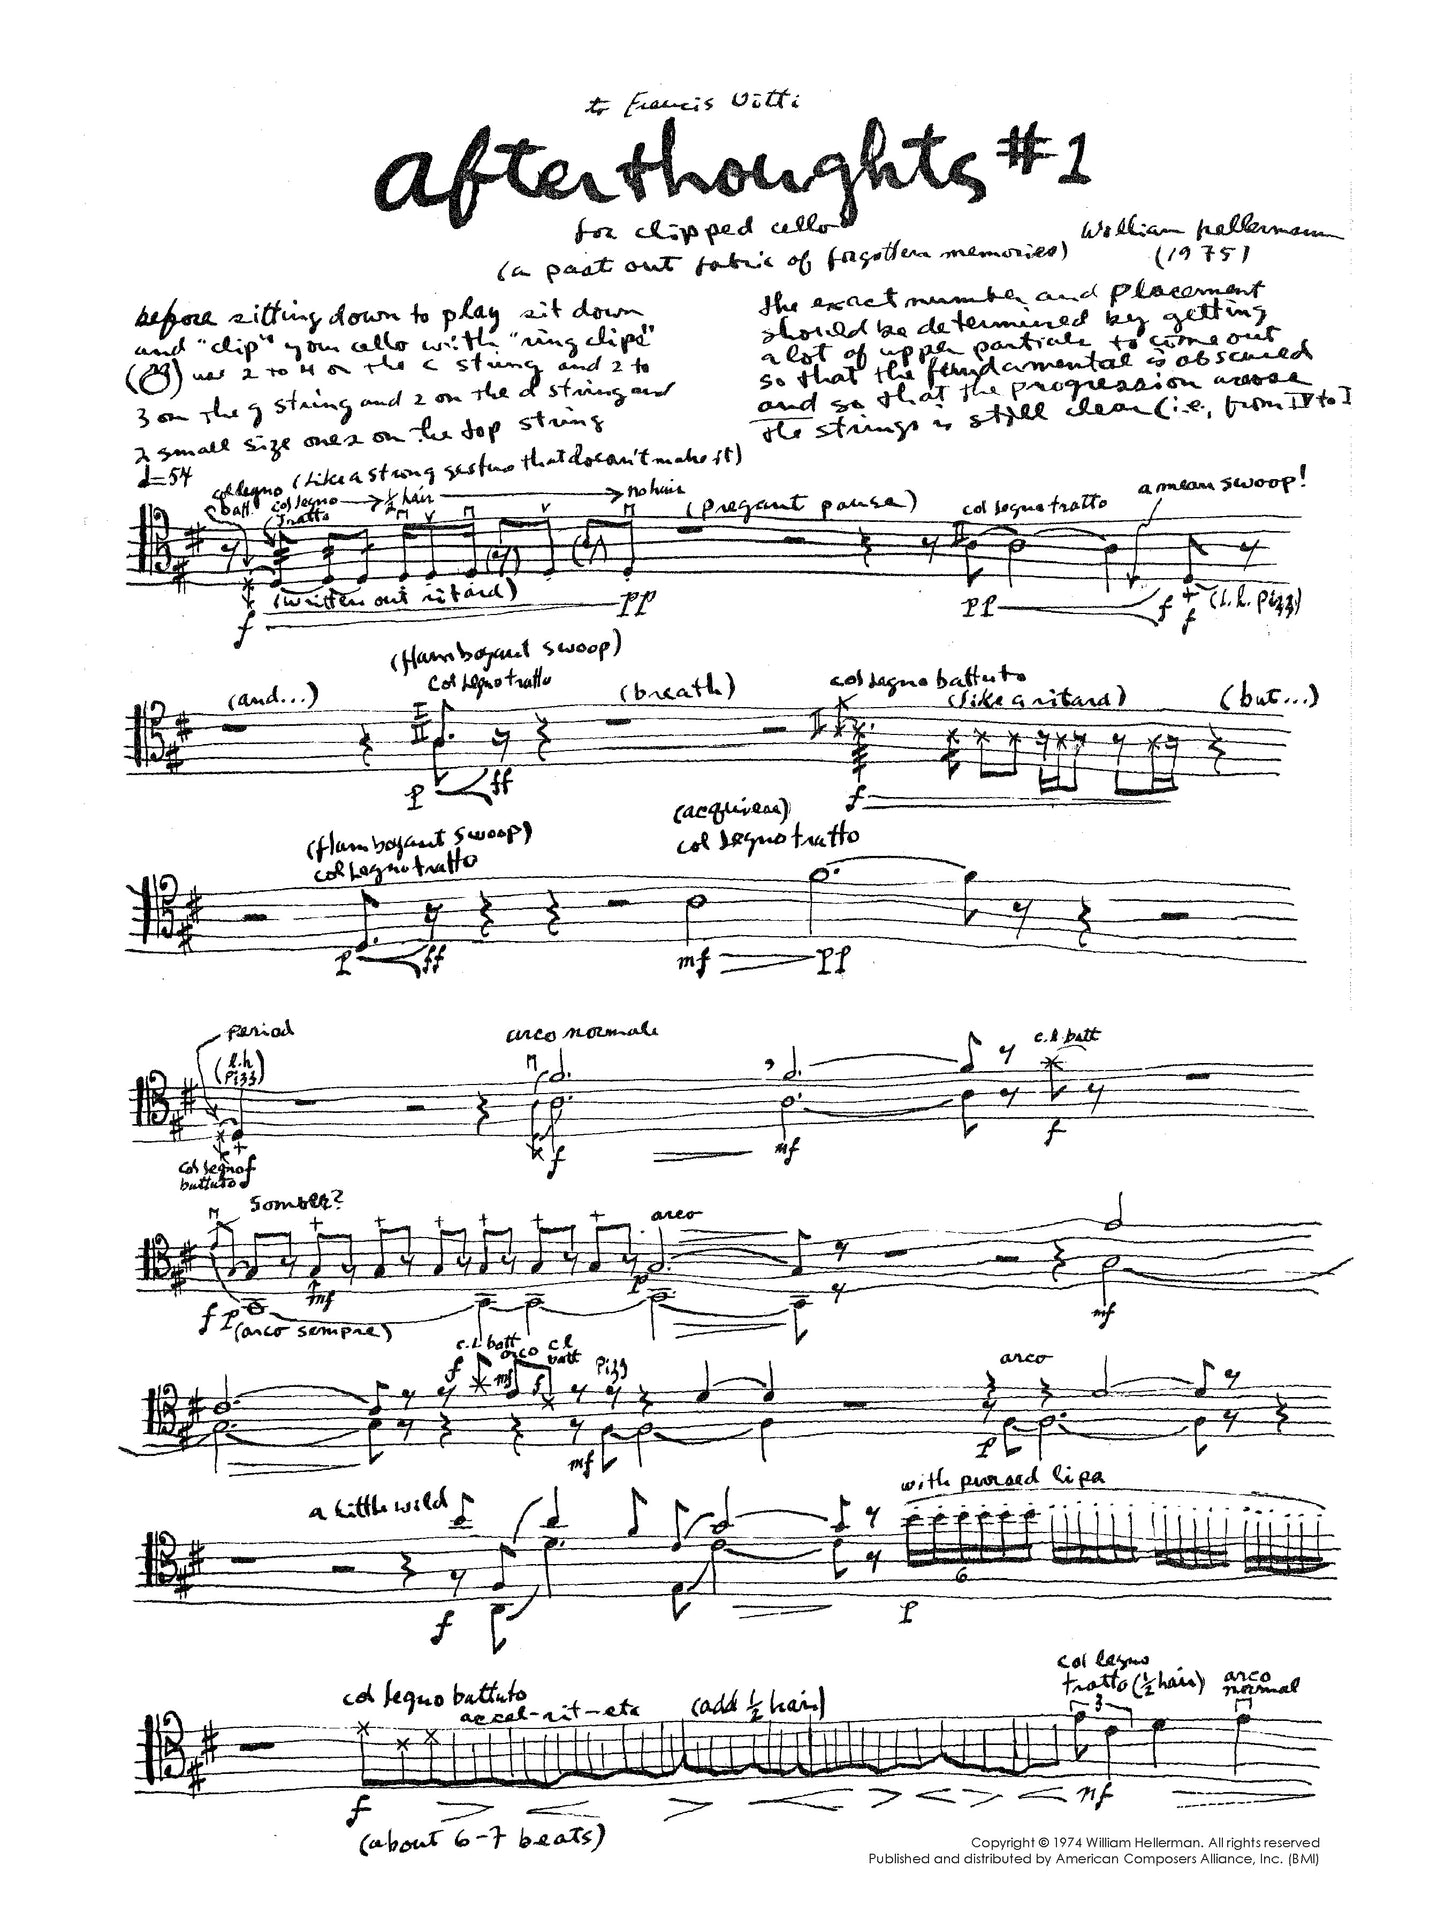 to Francis Uitti
afterthoughts #1
for clipped cello
William Hellermann
(a past out fabric of forgotten memories)
(1975)
before sitting down to play sit down
and "clip" your cello with "ring clips"
( ) use 2 to 4 on the C string and 2 to
3 on the g string and 2 on the d string and
2 small size ones on the top string
the exact number and placement
should be determined by getting
a lot of upper partials to come out
so that the fundamental is obscured
and so that the progression across
the strings is still clear (i.e., from IV to I
♩=54
(like a strong gesture that doesn't make it)
col legno batt.
col legno tratto → ½ hair → no hair
(pregant pause)
col legno tratto
a mean swoop!
II
(written out ritard)
f
pp
pp
f
f
+
(l.h. pizz)
(and...)
(flamboyant swoop)
col legno tratto
I
II
(breath)
col legno battuto
(like a ritard)
(but...)
p
ff
f
(flamboyant swoop)
col legno tratto
(acquiesce)
col legno tratto
p
ff
mf
pp
period
(l.h pizz)
arco normale
c.l. batt
+
col legno battuto
f
f
mf
f
somber?
+ + + + + +
arco
f p
mf
p
mf
(arco sempre)
c.l. batt
arco
c l batt
pizz
arco
f
mf
f
mf
p
a little wild
with pursed lips
6
f
p
col legno battuto
accel-rit-etc
(add ½ hair)
col legno tratto (½ hair)
3
arco normal
f
mf
(about 6-7 beats)
Copyright © 1974 William Hellerman. All rights reserved
Published and distributed by American Composers Alliance, Inc. (BMI)